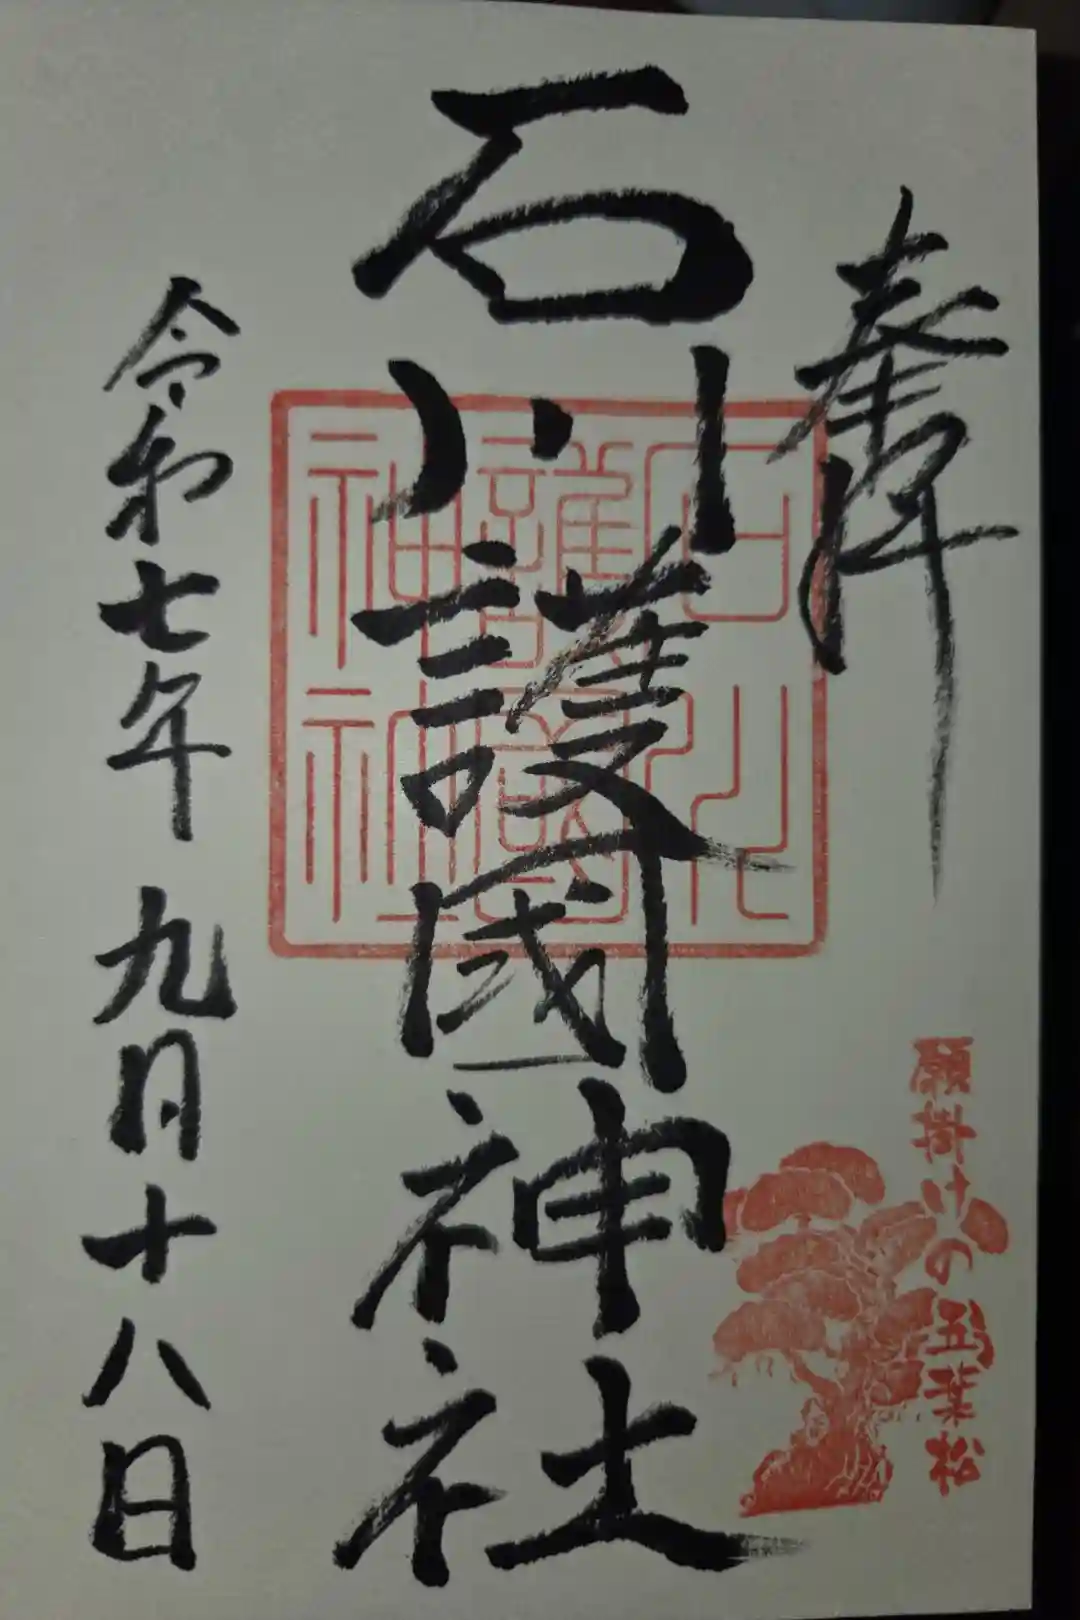 奉拝
願掛けの五葉松
石川護國神社
石川
護國
神社
令和七年 九月十八日